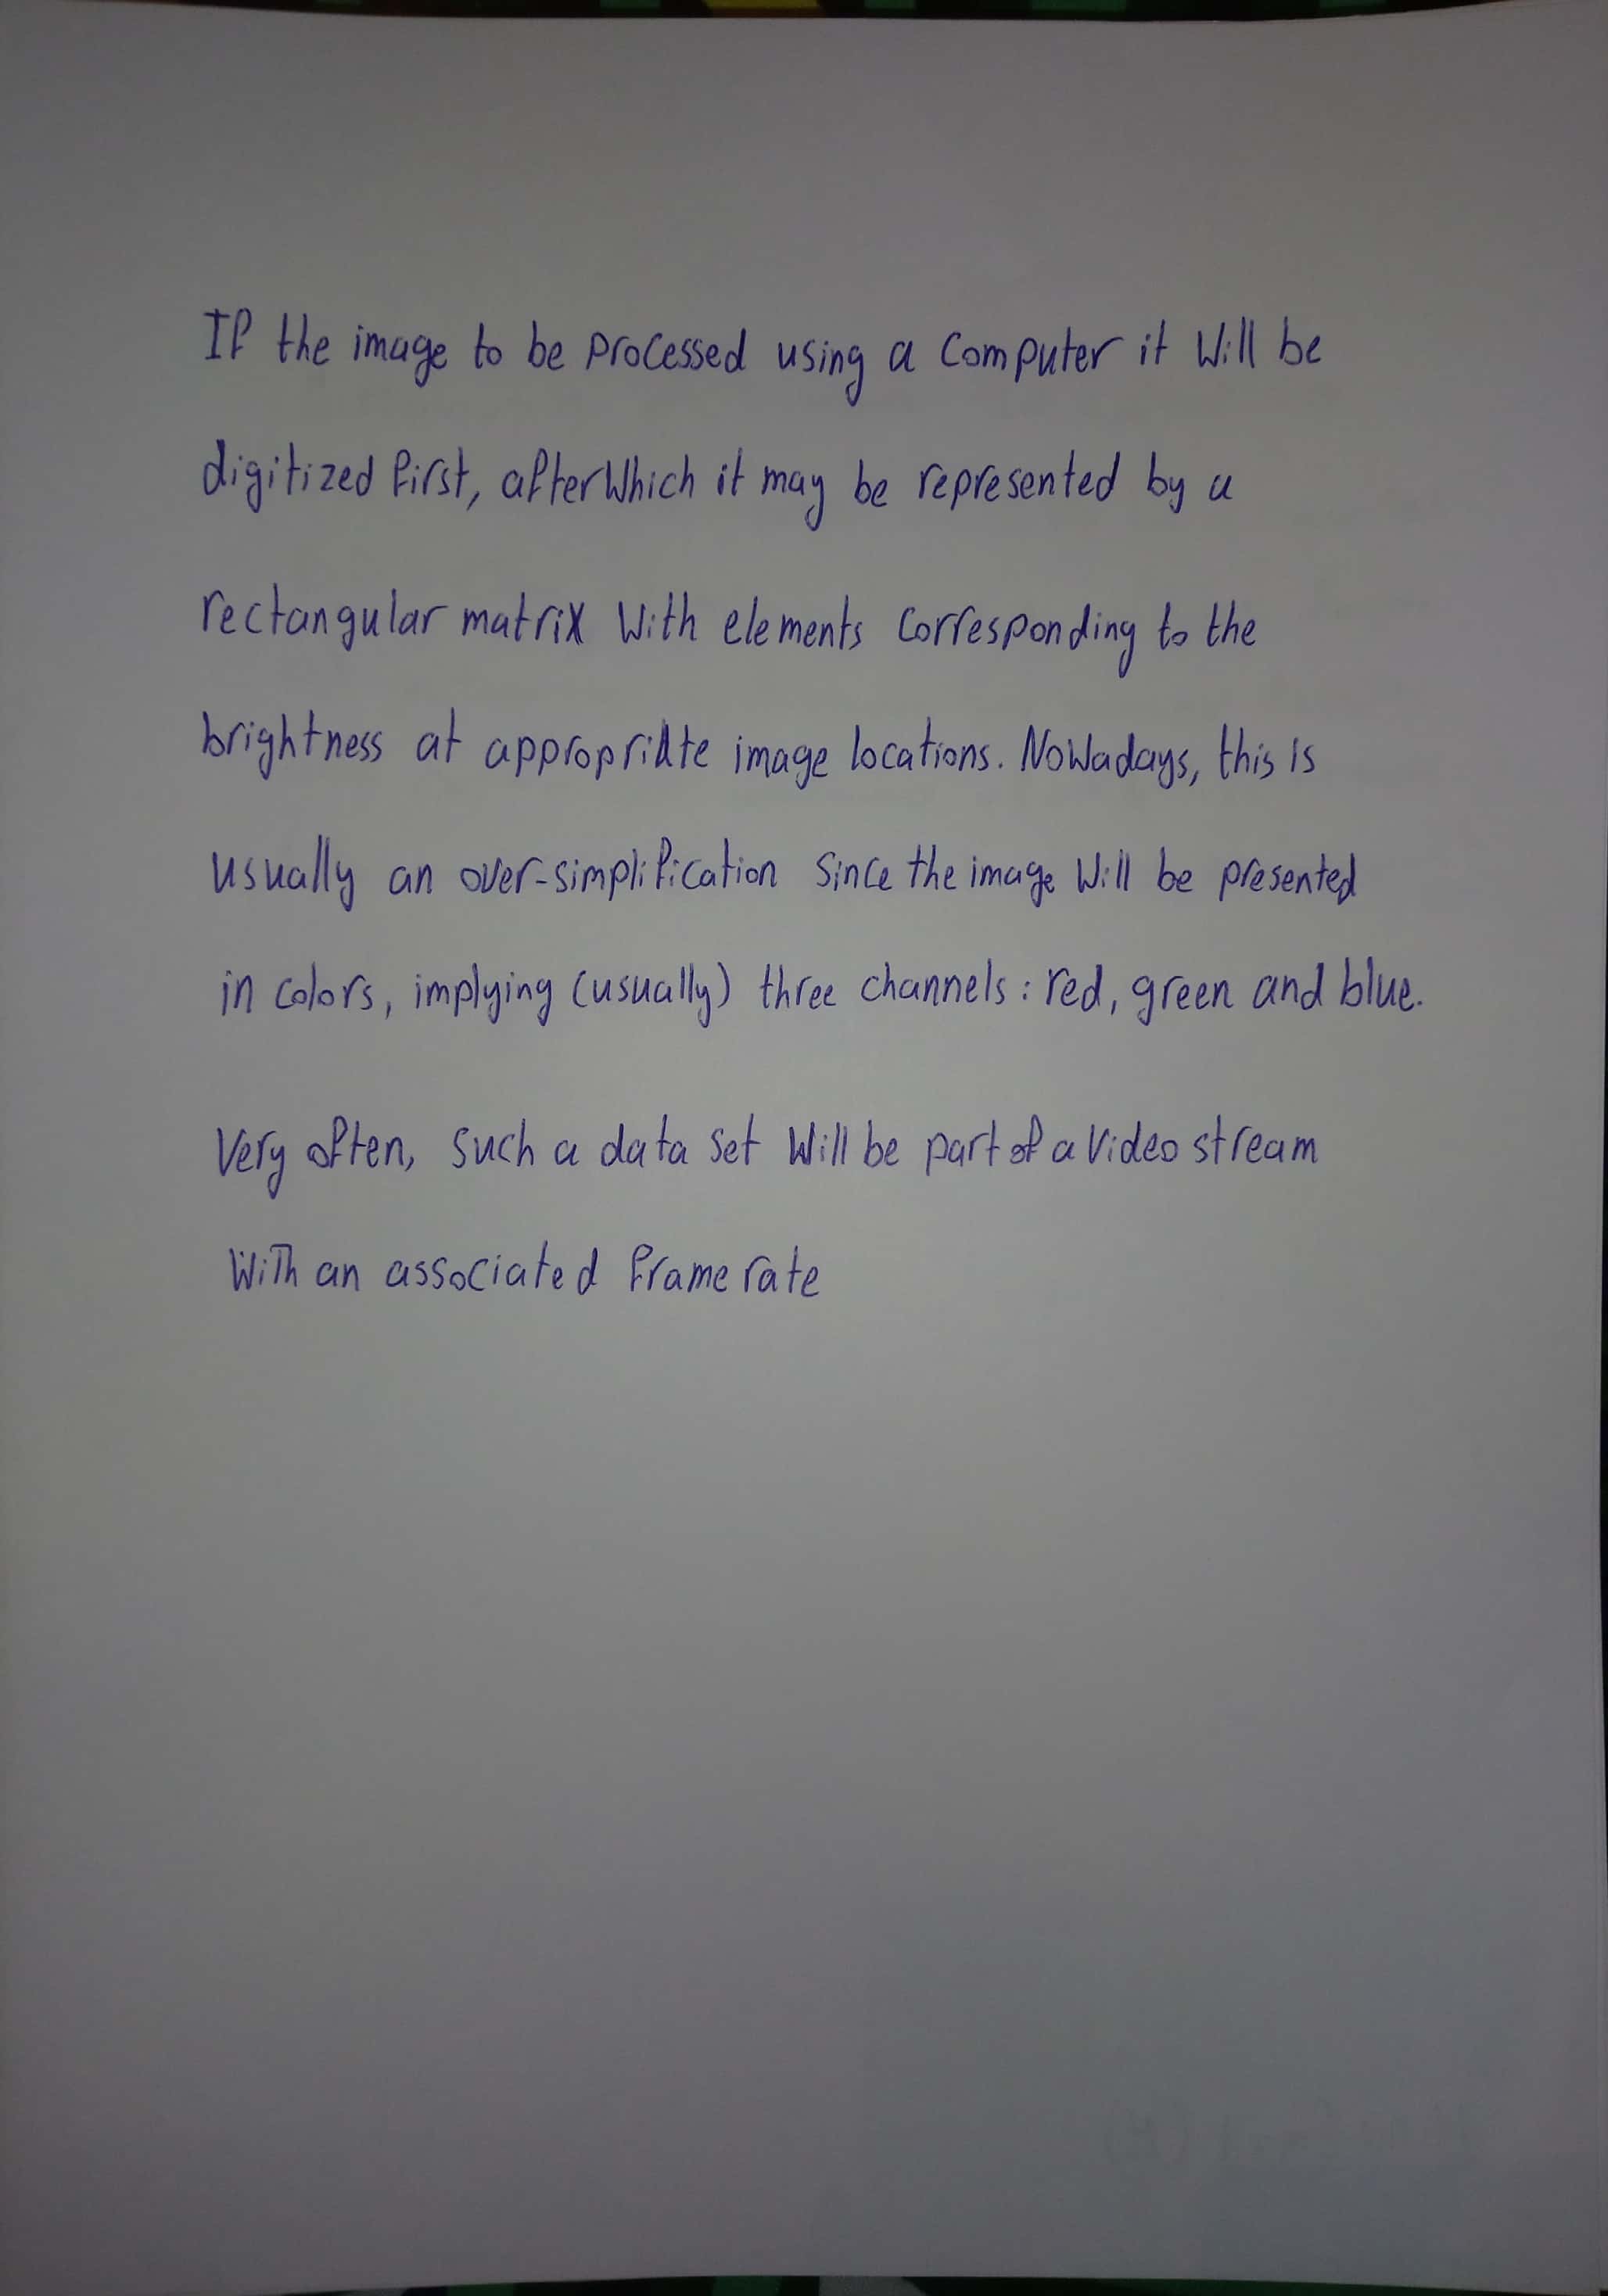 If the image to be processed using a computer it will be
digitized first, after which it may be represented by a
rectangular matrix with elements corresponding to the
brightness at appropriate image locations. Nowadays, this is
usually an over-simplification since the image will be presented
in colors, implying (usually) three channels: red, green and blue.
Very often, such a data set will be part of a video stream
with an associated frame rate